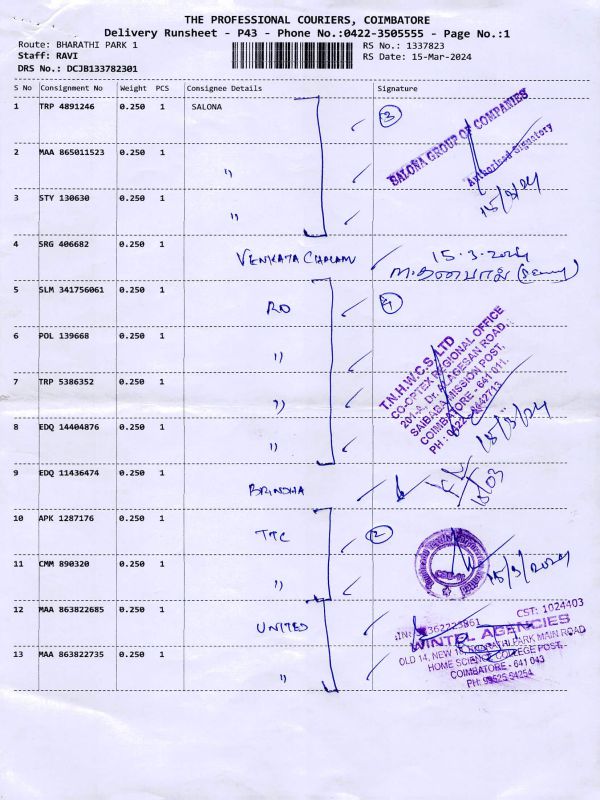 THE PROFESSIONAL COURIERS, COIMBATORE
Delivery Runsheet - P43 - Phone No.:0422-3505555 - Page No.:1
Route: BHARATHI PARK 1
RS No.: 1337823
Staff: RAVI
RS Date: 15-Mar-2024
DRS No.: DCJB133782301
S No Consignment No Weight PCS Consignee Details Signature
1 TRP 4891246 0.250 1 SALONA 3
SALONA GROUP OF COMPANIES
Authorised Signatory
15/3/24
2 MAA 865011523 0.250 1 "
3 STY 130630 0.250 1 "
4 SRG 406682 0.250 1 VENKATA CHALAM 15.3.2024
5 SLM 341756061 0.250 1 RO 4
6 POL 139668 0.250 1 "
T.N.H.W.C.S. LTD
CO-OPTEX REGIONAL OFFICE
201-A, Dr. ALAGESAN ROAD,
SAIBABA MISSION POST,
COIMBATORE - 641 011.
PH : 0422 - 2442713
7 TRP 5386352 0.250 1 "
8 EDQ 14404876 0.250 1 " 15/3/24
9 EDQ 11436474 0.250 1 BRINDHA 15/03
10 APK 1287176 0.250 1 TTC 2
11 CMM 890320 0.250 1 " 15/3/2024
12 MAA 863822685 0.250 1 UNITED
CST: 1024403
WINTEL AGENCIES
OLD 14, NEW 18, BHARATHI PARK MAIN ROAD
HOME SCIENCE COLLEGE POST,
COIMBATORE - 641 043
PH: 98525 54254
13 MAA 863822735 0.250 1 "